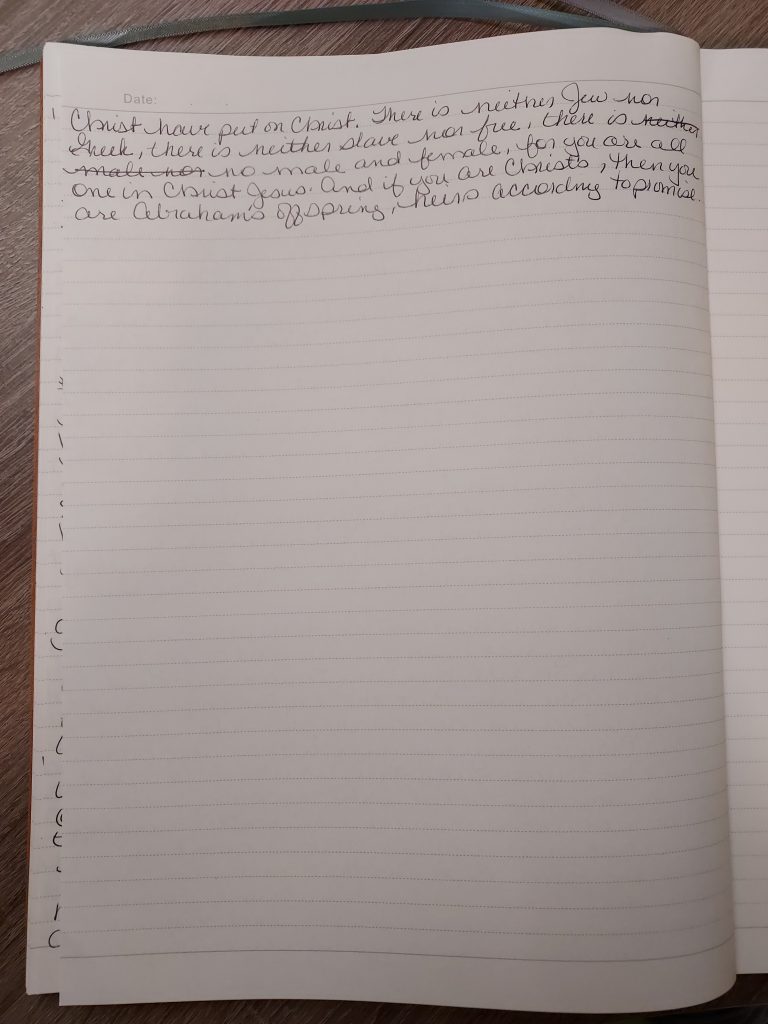 Date:
Christ have put on Christ. There is neither Jew nor
Greek, there is neither slave nor free, there is neither
male nor no male and female, for you are all
one in Christ Jesus. And if you are Christs, then you
are Abraham's offspring, heirs according to promise.